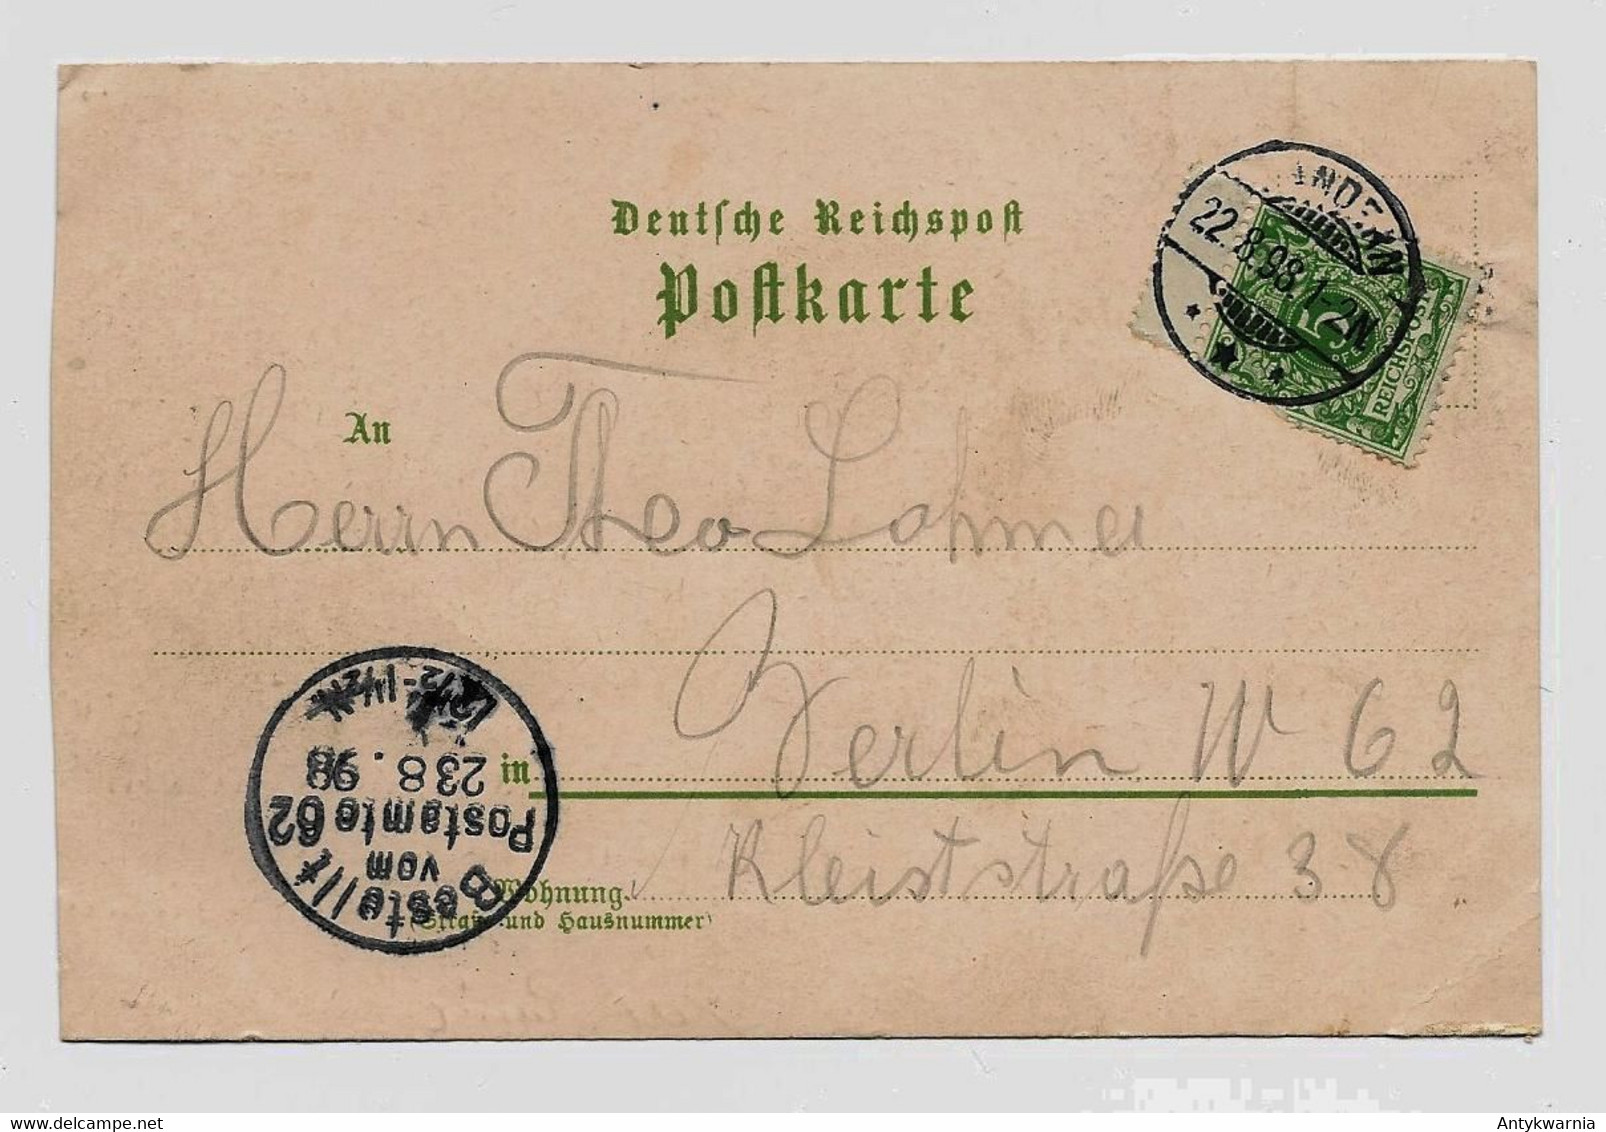 Deutsche Reichspost
Postkarte
22.8.98. 1-2N.
5
REICHSPOST
An
Herrn Theo Lohmer
in Berlin W 62
Wohnung Kleiststraße 38
(Straße und Hausnummer)
Bestellt
vom
Postamte 62
23 8. 98
Antykwarnia